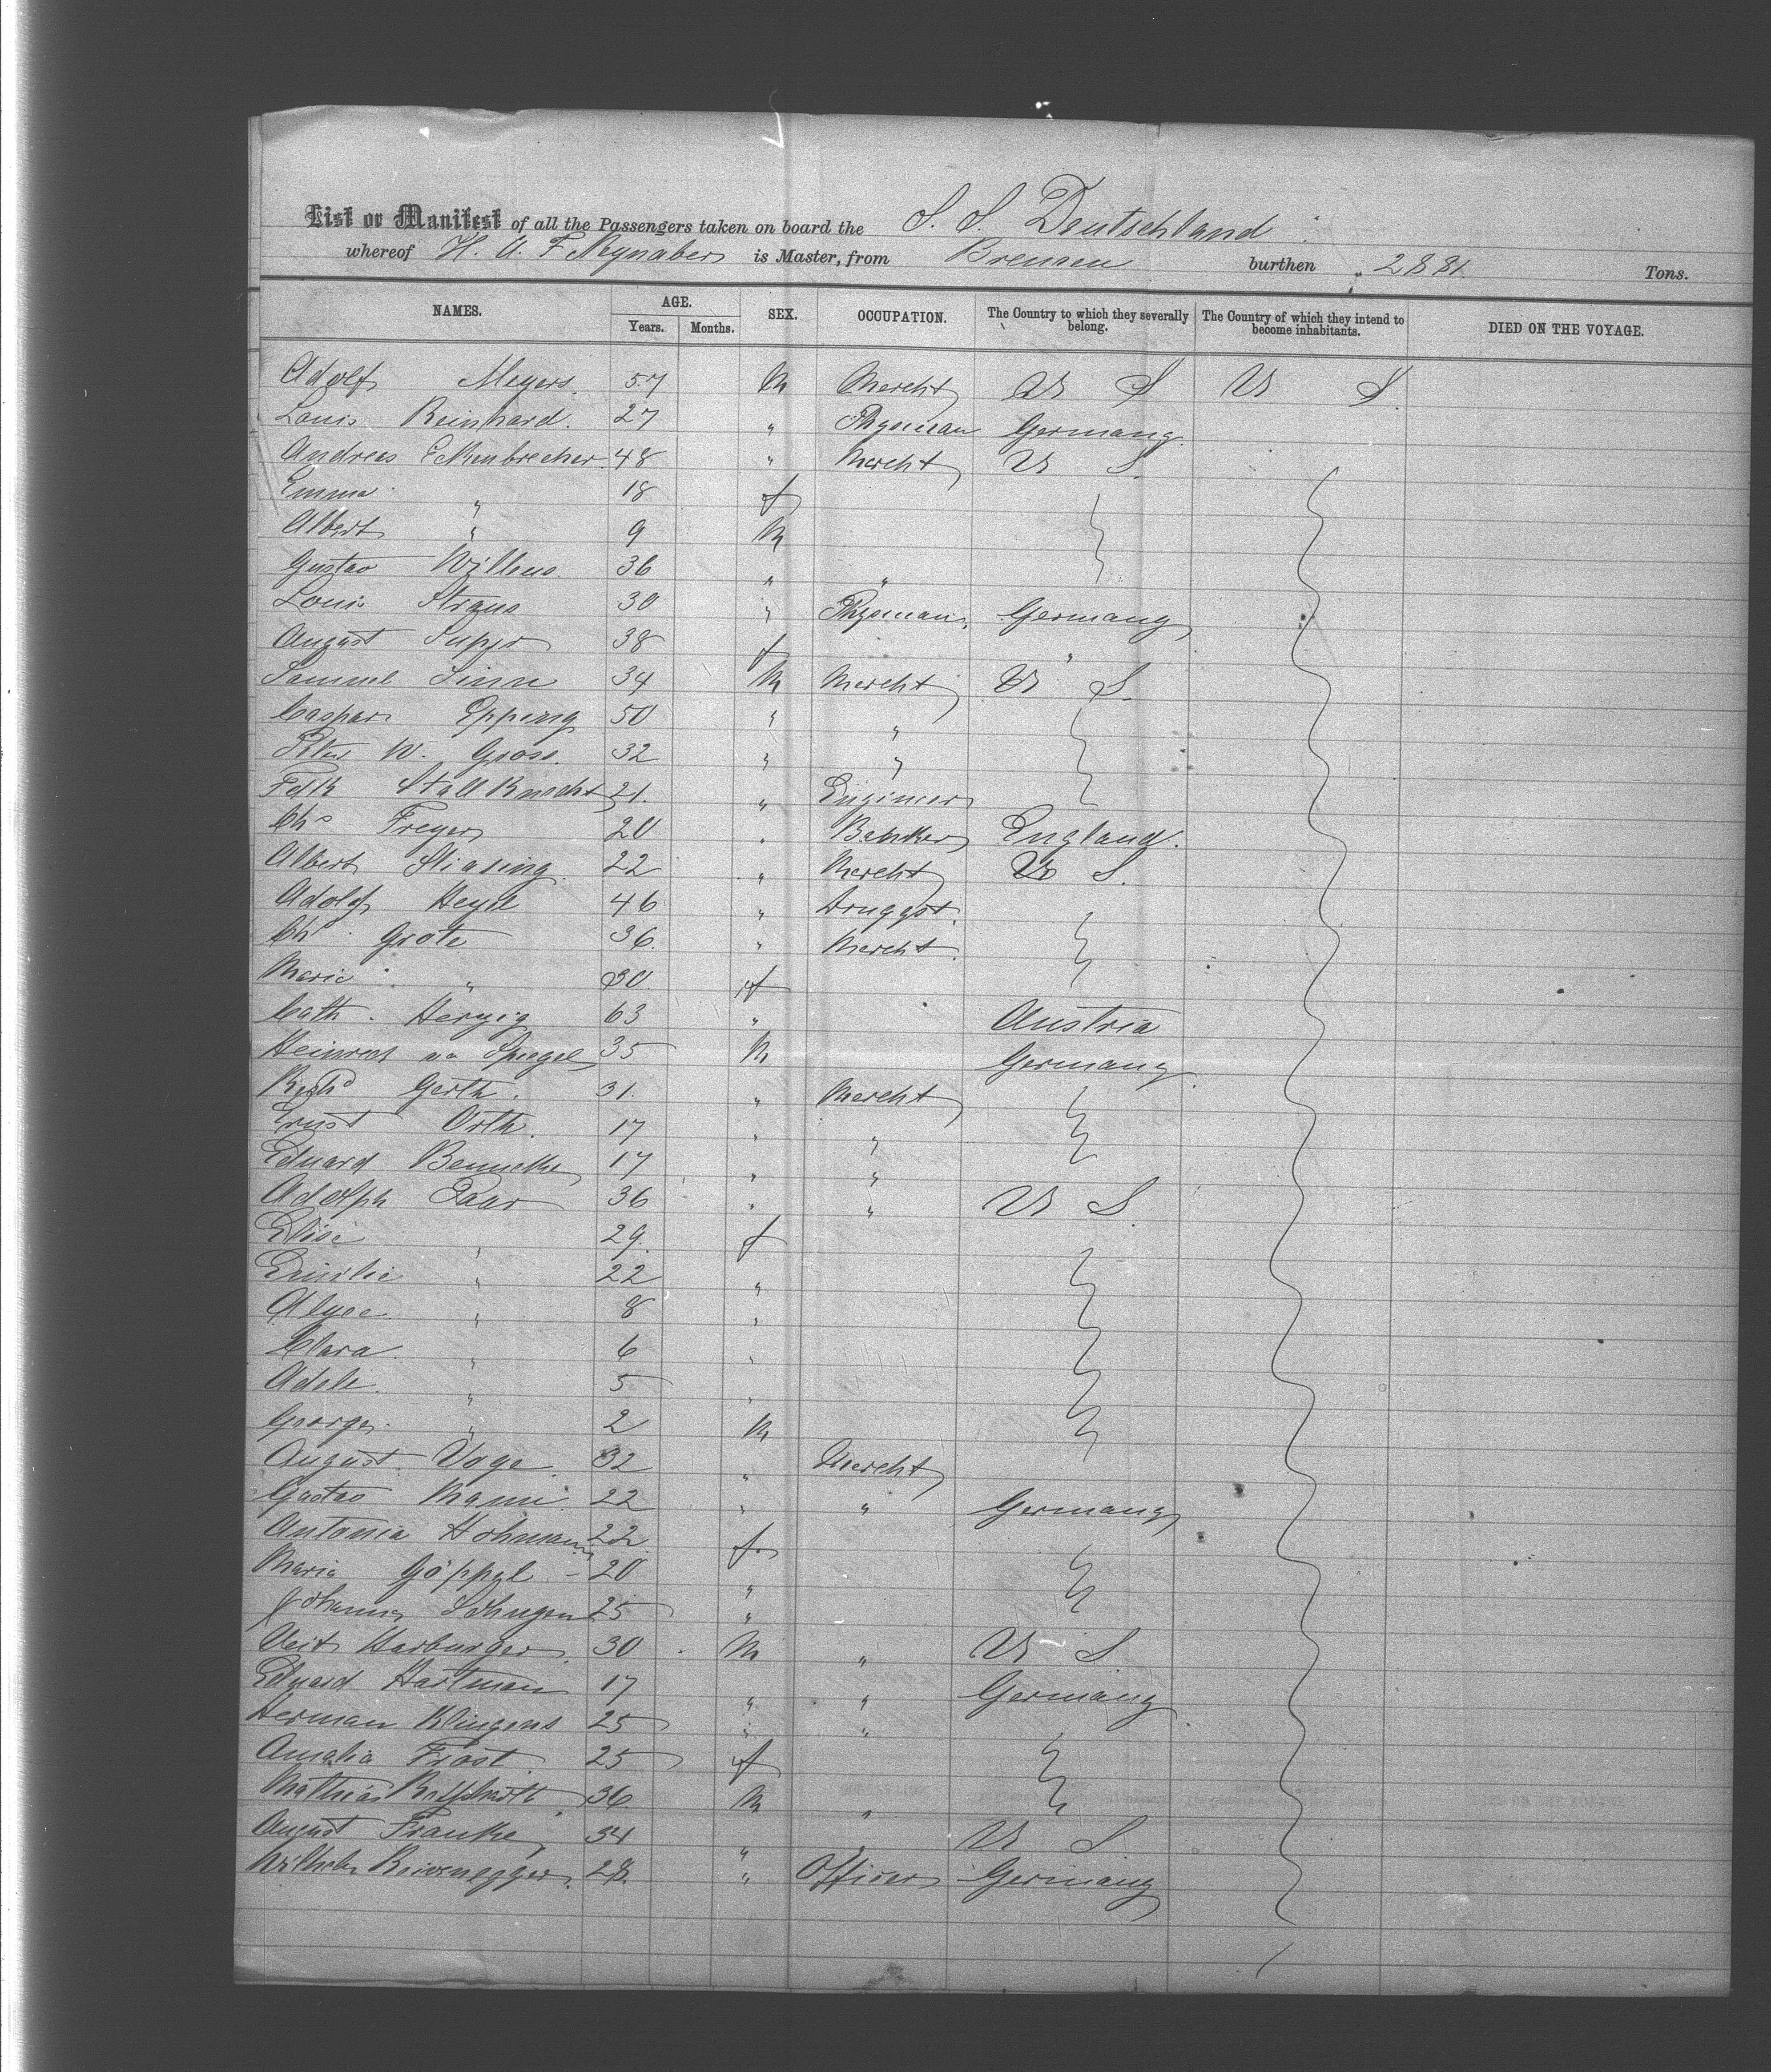 List or Manifest of all the Passengers taken on board the S. S. Deutschland
whereof H. A. F. Neynaber is Master, from Bremen burthen 2881 Tons.
NAMES. AGE. Years. Months. SEX. OCCUPATION. The Country to which they severally belong. The Country of which they intend to become inhabitants. DIED ON THE VOYAGE.
Adolf Meyers 57 M Mercht U S U S
Louis Reinhard 27 " Physician Germany
Andreas Eckenbrecher 48 " Mercht U S
Emma " 18 f
Albert " 9 M
Gustav Willens 36 " "
Louis Straus 30 " Physician Germany
August 38 f "
Samuel Linn 34 M Mercht U S
Caspar Epping 50 " "
Peter W. Gross 32 " "
Fedk Stallknecht 21 " Engineer
Chs Freyer 20 " Banker England
Albert 22 " Mercht U S
Adolf Heyd 46 " Druggst
Chs Grote 36 " Mercht
Marie " 30 f
Cath. Herzig 63 " Austria
Heinrich von Spiegel 35 M Germany
Richd Gerth 31 " Mercht
Ernst Orth 17 " "
Eduard Bennecke 17 " "
Adolph Paar 36 " " U S
Elise " 29 f
Emilie " 22 "
Alyce " 8 "
Clara " 6 "
Adele " 5 "
George " 2 M
August Voge 32 " Mercht
Gustav Mann 22 " " Germany
Antonia Hohmann 22 f
Maria Göppel 20 "
Johanna 25 "
Veit Harburger 30 M " U S
Eduard Hartman 17 " " Germany
Herman Klingens 25 " "
Amalia Frost 25 f
Mathias 36 M "
August Franke 34 " U S
Wilhelm 28 " Officer Germany